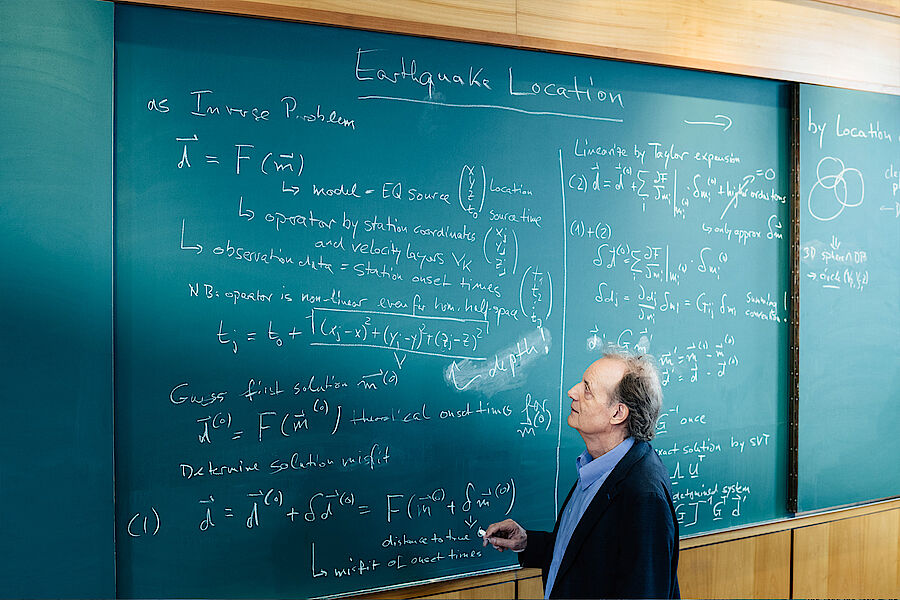 Earthquake Location
as Inverse Problem
d⃗ = F(m⃗)
↳ model = EQ source (x y z t₀) location
source time
↳ operator by station coordinates
and velocity layers V_K (x_j y_j z_j)
↳ observation data = station onset times (t₁ t₂ ⋮ t_j)
NB: operator is non-linear even for hom. half-space
t_j = t₀ + √((x_j-x)²+(y_j-y)²+(z_j-z)²)
V
depth!
Guess first solution m⃗⁽⁰⁾
d⃗⁽⁰⁾ = F(m⃗⁽⁰⁾) theoretical onset times for
m⃗⁽⁰⁾
Determine solution misfit
(1) d⃗ = d⃗⁽⁰⁾ + δd⃗⁽⁰⁾ = F(m⃗⁽⁰⁾ + δm⃗⁽⁰⁾)
distance to true
↳ misfit of onset times
→
Linearize by Taylor expansion
(2) d⃗ = d⃗⁽⁰⁾ + ∑_i ∂F/∂m_i |_{m_i⁽⁰⁾} · δm_i⁽⁰⁾ + higher orders
=0
↳ only approx δm⃗
(1)+(2)
δd⃗⁽⁰⁾ = ∑_i ∂F/∂m_i |_{m_i⁽⁰⁾} · δm_i⁽⁰⁾
δd_j = ∂d_j/∂m_i δm_i = G_ij δm_i summing
convention!
d⃗' = G m⃗'
m⃗' = m⃗ - m⃗⁽⁰⁾
d⃗' = d⃗ - d⃗⁽⁰⁾
G⁻¹ once
exact solution by SVD
Λ Uᵀ
determined system
G]⁻¹ Gᵀ d⃗'
by Location
3D sphere